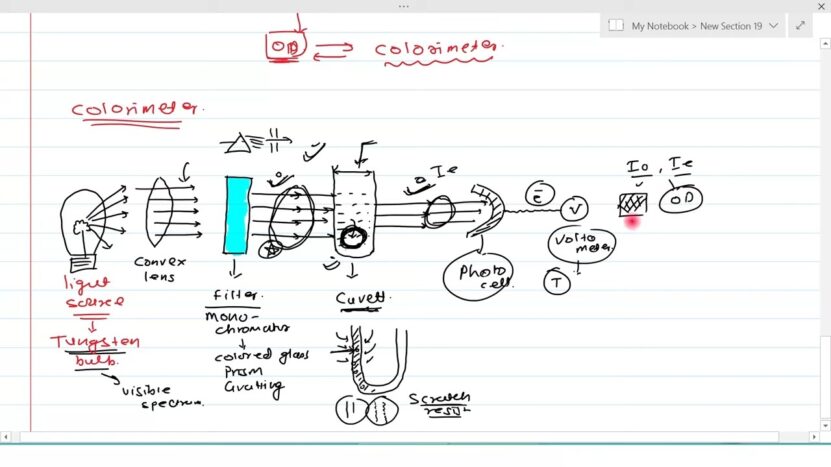 My Notebook > New Section 19
OD
colorimeter.
colorimeter.
Io, Ie
Ie
OD
e
V
volto
meter
T
convex
lens
Photo
cell.
light
source
Tungsten
bulb.
visible
spectrum.
filter.
mono-
chromator
colored glass
Prism
Grating
Cuvett.
Scratch